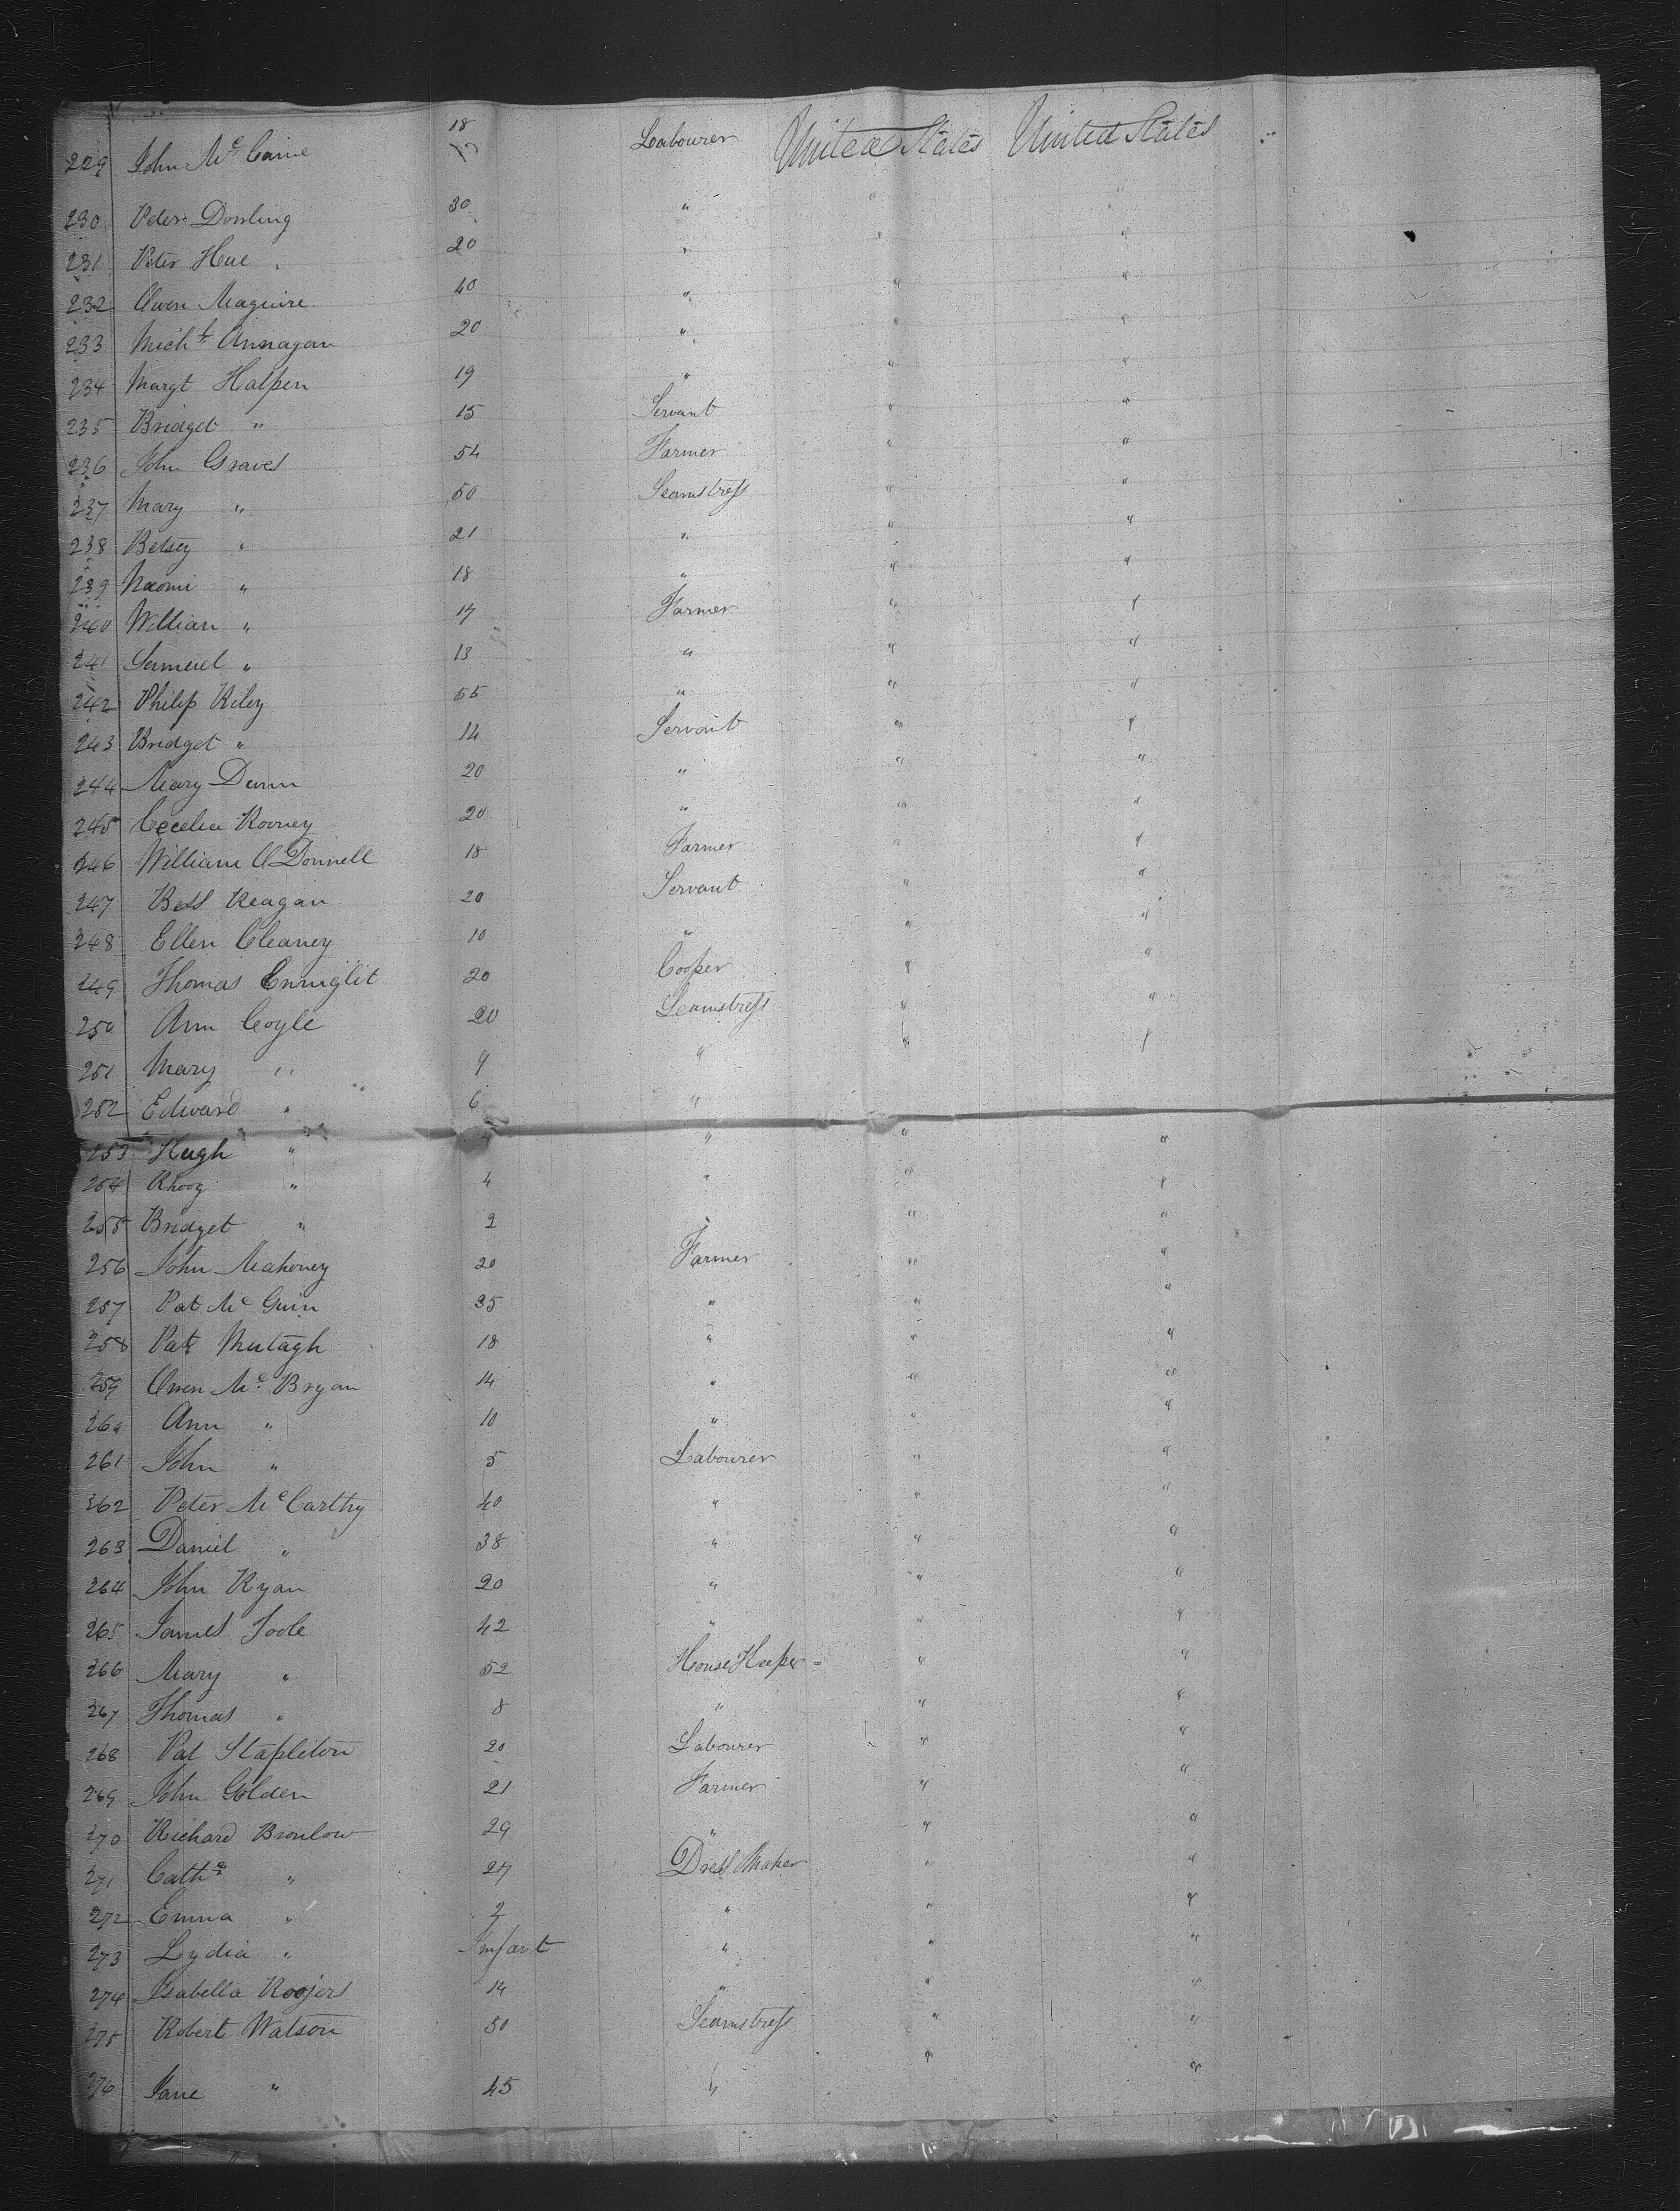 229 John McCaine 18 Labourer United States United States
230 Peter Dowling 30 " " "
231 Peter Hue 20 " " "
232 Owen Maguire 40 " " "
233 Michl Annagan 20 " " "
234 Margt Halpen 19 " " "
235 Bridget " 15 Servant " "
236 John Graves 54 Farmer " "
237 Mary " 50 Seamstress " "
238 Betsey " 21 " " "
239 Naomi " 18 " " "
240 William " 17 Farmer " "
241 Samuel " 13 " " "
242 Philip Riley 55 " " "
243 Bridget " 14 Servant " "
244 Mary Dunn 20 " " "
245 Cecelia Rooney 20 " " "
246 William O Donnell 18 Farmer " "
247 Bess Reagan 20 Servant " "
248 Ellen Cleaney 10 " " "
249 Thomas 20 Cooper " "
250 Ann Coyle 20 Seamstress " "
251 Mary " 9 " " "
252 Edward " 6 "
253 Hugh " 4 " " "
254 " 4 " " "
255 Bridget " 2 " " "
256 John Mahoney 20 Farmer " "
257 Pat Mc Guin 35 " " "
258 Pat Mutagh 18 " " "
259 Owen Mc Bryan 14 " " "
260 Ann " 10 " " "
261 John " 5 Labourer " "
262 Peter McCarthy 40 " " "
263 Daniel " 38 " " "
264 John Ryan 20 " " "
265 James Toole 42 " " "
266 Mary " 52 House Keeper " "
267 Thomas " 8 " " "
268 Pat Stapleton 20 Labourer " "
269 John Golden 21 Farmer " "
270 Richard Bronlow 29 " " "
271 Cathe " 27 Dress Maker " "
272 Emma " 2 " " "
273 Lydia " Infant " " "
274 Isabella Roojers 14 " " "
275 Robert Watson 50 Seamstress " "
276 Jane " 45 " " "